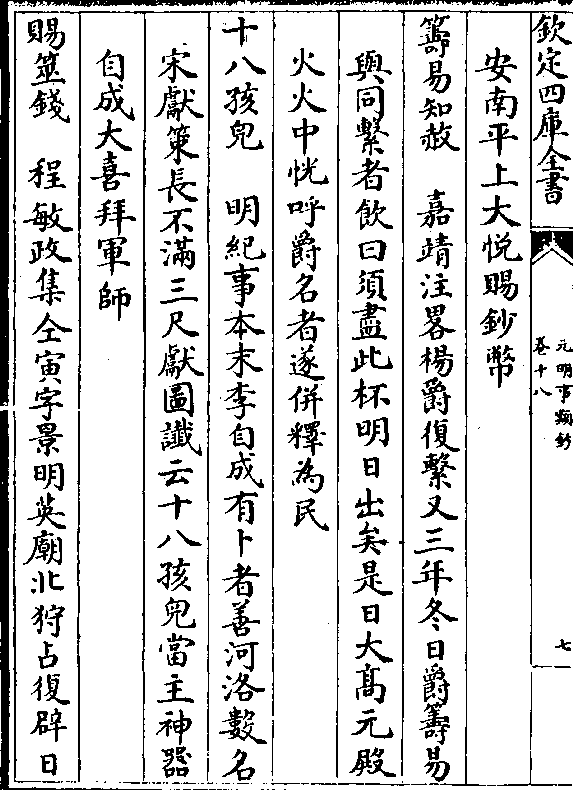 欽定四庫全書
元明事類鈔
卷十八
七
安南平上大悦賜鈔幣
籌易知赦　嘉靖注畧楊爵復繫又三年冬日爵籌易
與同繫者飲曰須盡此杯明日出矣是日大髙元殿
火火中恍呼爵名者遂併釋為民
十八孩兒　明紀事本末李自成有卜者善河洛數名
宋獻策長不滿三尺獻圖讖云十八孩兒當主神器
自成大喜拜軍師
賜筮錢　程敏政集仝寅字景明英廟北狩占復辟日